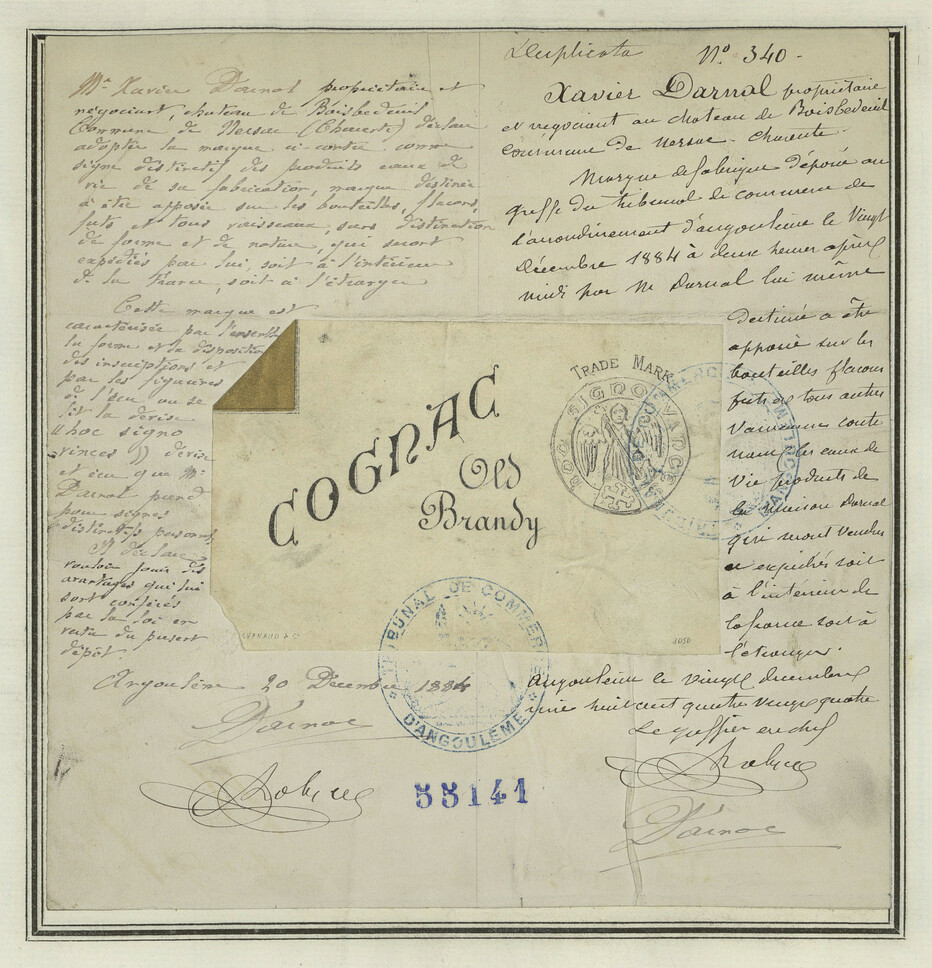 Duplicata Nº 340 -
Mr Xavier Darnal propriétaire et
négociant, chateau de Boisbedeuil
Commune de Nersac (Charente) déclare
adopter la marque ci-contre comme
signe distinctif des produits eaux de
vie de sa fabrication, marque destinée
à être apposée sur les bouteilles, flacons,
futs et tous vaisseaux, sans distinction
de forme et de nature, qui seront
expédiés par lui, soit à l'intérieur
de la france, soit à l'étranger
Cette marque est
caractérisée par l'ensemble
la forme et la disposition
des inscriptions et
par les figures
de l'écu ou se
lit la devise
"hoc signo
vinces" devise
et écu que Mr
Darnal prend
pour signes
distinctifs personnels
Il déclare
vouloir jouir des
avantages qui lui
sont conférés
par la loi en
vertu du present
dépôt.
Angoulême 20 Décembre 1884
Darnal
Xavier Darnal propriétaire
et négociant au chateau de Boisbedeuil
commune de nersac - charente
Marque de fabrique déposée au
greffe du tribunal de commerce de
l'arrondissement d'angoulême le Vingt
Décembre 1884 à deux heures après
midi par Mr Darnal lui même
Destinée à être
apposée sur les
bouteilles flacons
futs et tous autres
vaisseaux conte
nant les eaux de
vie produits de
la maison Darnal
qui seront vendus
et expédiés soit
à l'intérieur de
la france soit à
l'étranger.
angoulême le vingt decembre
mil huit cent quatre vingt quatre
Le greffier en chef
Darnal
COGNAC
Old
Brandy
TRADE MARK
HOC SIGNO VINCES
3050
TRIBUNAL DE COMMERCE
D'ANGOULÊME
TRIBUNAL DE COMMERCE
D'ANGOULÊME
55141